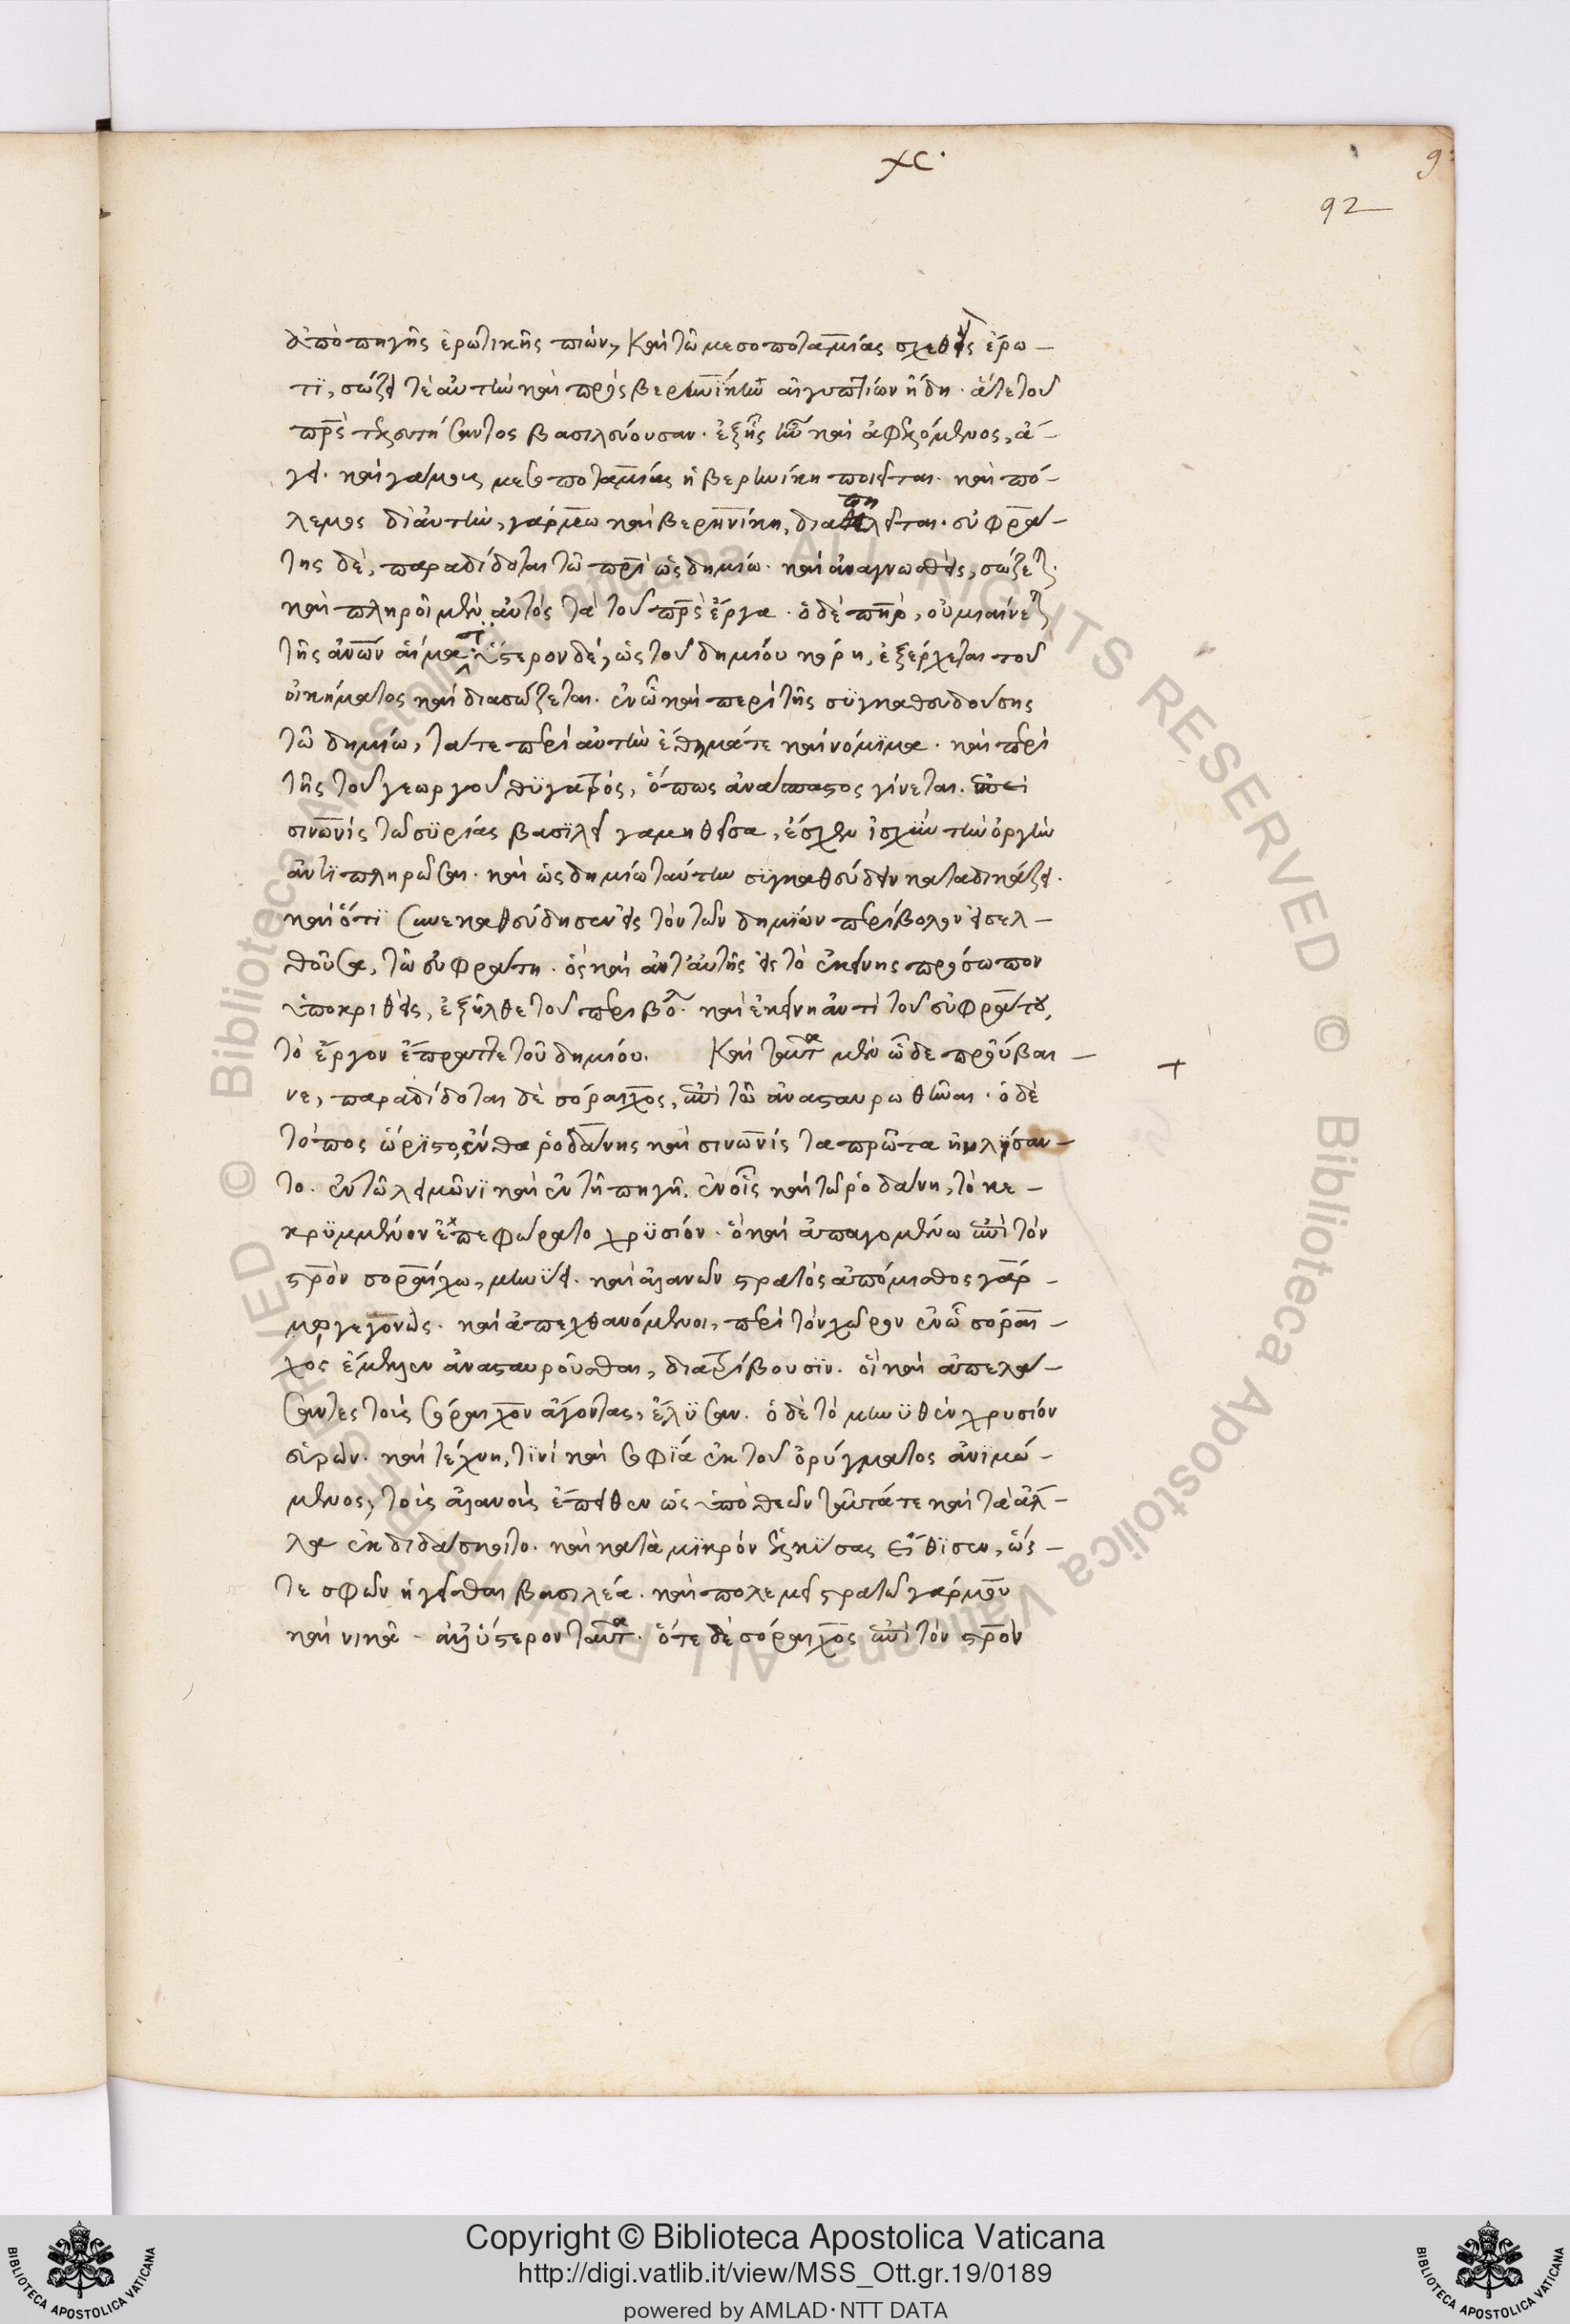 χϲ·
92
ἀπὸ πηγῆς ἐρωτικῆς πιών, καὶ τῶ μεσοποταμίας σχεθεὶς ἔρω-
τι, σώζει τὲ αὐτὴν καὶ πρὸς βερνίκην αἰγυπτίων ἤδη. ἅτε τοῦ
πρς τελευτήσαντος βασιλεύουσαν. ἐξ ἧς ἦν καὶ ἀφικόμενος, ἄ-
γει. καὶ γάμους μεσοποταμίας ἡ βερνίκη ποιεῖται. καὶ πό-
λεμος δι αὐτὴν, γάρμω καὶ βερηνίκη, διαπειλεῖται. εὐφρά-
της δὲ, παραδίδοται τῶ πρὶ ὡς δημίω. καὶ ἀναγνωσθεὶς, σώζετ.
καὶ πληροῖ μὲν αὐτὸς τὰ τοῦ πρς ἔργα. ὁ δὲ πηρ, οὐ μιαίνετ
τῆς ἀνων αἵμασι· ὕστερον δὲ, ὡς τοῦ δημίου κόρη, ἐξέρχεται τοῦ
οἰκήματος καὶ διασώζεται. ἐν ᾧ καὶ περὶ τῆς συγκαθευδούσης
τῶ δημίω, τά τε περὶ αὐτὴν ἔθη μάτε καὶ νόμιμα. καὶ περὶ
τῆς τοῦ γεωργοῦ θυγατρός, ὅπως ἀνάπαστος γίνεται. ἐπεὶ
σινωνὶς τῶ συρίας βασιλεῖ γαμηθεῖσα, ἔσχεν ἰσχὺν τὴν ὀργὴν
ἀντιπληρῶσαι. καὶ ὡς δημίω ταύτην συγκαθεύδειν καταδικάζει.
καὶ ὅτι συνεκαθεύδησεν εἰς τὸν τῶν δημίων περίβολον εἰσελ-
θοῦσα, τῶ εὐφράτη. ὃς καὶ ἀντ’ αὐτῆς εἰς τὸ ἐκείνης πρόσωπον
ὑποκριθεὶς, ἐξῆλθε τοῦ περιβόλ. καὶ ἐκείνη ἀντὶ τοῦ εὐφράτου,
τὸ ἔργον ἔπραττε τοῦ δημίου. Καὶ ταῦτα μὲν ὧδε προύβαι-
νε, παραδίδοται δὲ σόραιχος, ἐπὶ τῶ ἀνασταυρωθῆναι. ὁ δὲ
τόπος ὥριστο, ἔνθα ῥοδάνης καὶ σινωνὶς τὰ πρῶτα ηὐλίσαν-
το. ἐν τῶ λειμῶνι καὶ ἐν τῆ πηγῆ. ἐν οἷς καὶ τῶ ῥοδάνη, τὸ κε-
κρυμμένον ἐπεφώρατο χρυσίον. ὃ καὶ ἀπαγομένω ἐπὶ τὸν
στρὸν σοραίχω, μηνύει. καὶ ἀλανῶν στρατὸς ἀπόμισθος γάρ-
μω γεγονώς. καὶ ἀπεχθανόμενοι, περὶ τὸν χῶρον ἐν ᾧ σόραι-
χος ἔμελλεν ἀνασταυροῦσθαι, διατρίβουσιν. οἳ καὶ ἀπελά-
σαντες τοὺς σόραιχον ἄγοντας, ἔλυσαν. ὁ δὲ τὸ μηνυθὲν χρυσίον
εὑρών. καὶ τέχνη, τινὶ καὶ σοφία ἐκ τοῦ ὀρύγματος ἀνιμώ-
μενος, τοὺς ἀλανοὺς ἔπειθεν ὡς ὑπὸ θεῶν ταῦτά τε καὶ τὰ ἀλ-
λα ἐκδιδάσκοιτο. καὶ κατὰ μικρὸν ἑλκύσας εἴθισεν, ὥσ-
τε σφῶν ἡγεῖσθαι βασιλέα. καὶ πολεμεῖ στρατῶ γάρμου
καὶ νικᾶ. ἀλλ ὕστερον ταῦτα. ὅτε δὲ σόραιχος ἐπὶ τὸν στρὸν
+
Copyright © Biblioteca Apostolica Vaticana
http://digi.vatlib.it/view/MSS_Ott.gr.19/0189
powered by AMLAD·NTT DATA
BIBLIOTECA APOSTOLICA VATICANA
BIBLIOTECA APOSTOLICA VATICANA